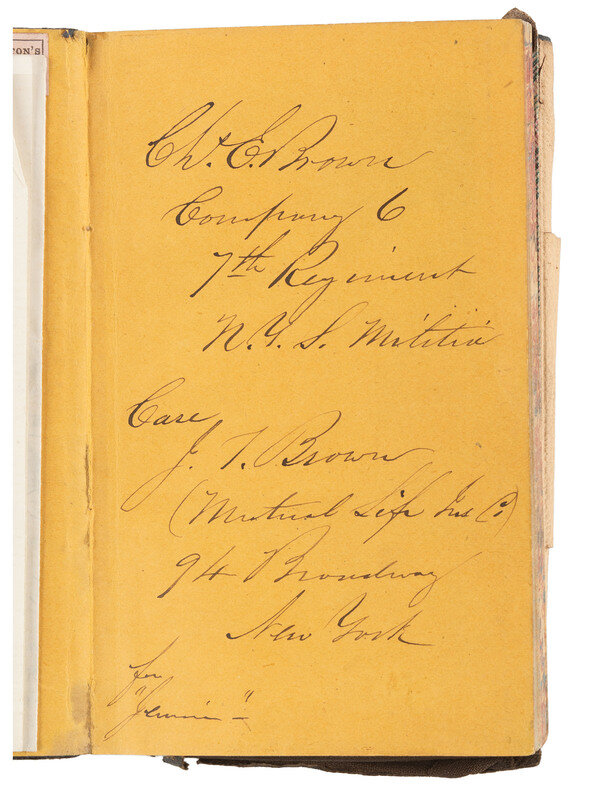 ON'S
Chs. E. Brown
Company 6
7th Regiment
N.Y.S. Militia
Care
J. T. Brown
(Mutual Life Ins Co)
94 Broadway
New York
for
"Jennie"